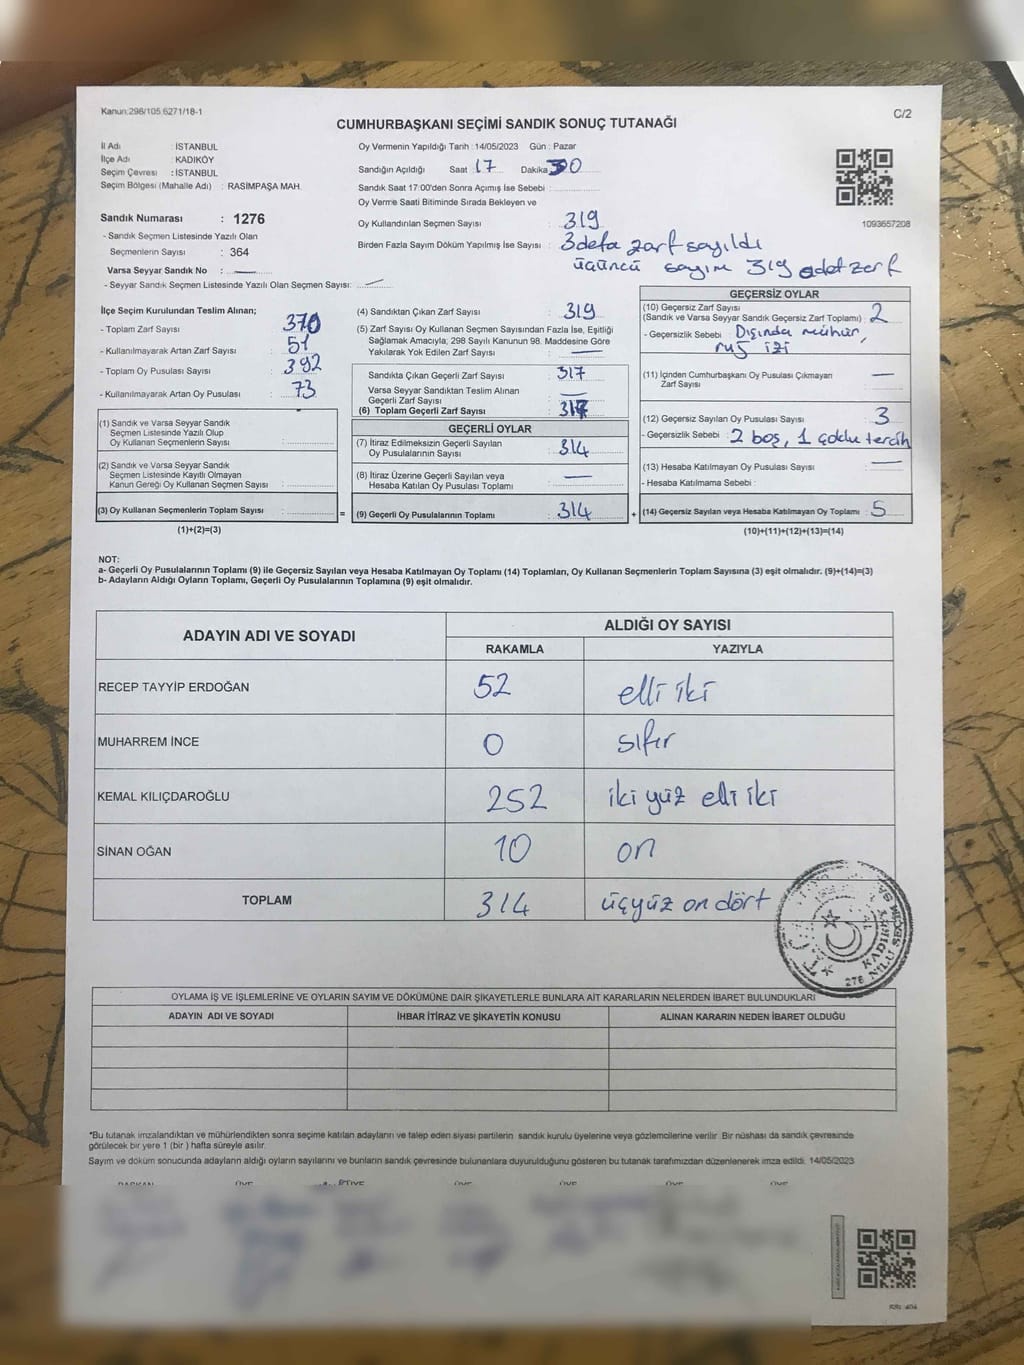 Kanun:298/105 6271/18-1
C/2
CUMHURBAŞKANI SEÇİMİ SANDIK SONUÇ TUTANAĞI
İl Adı : İSTANBUL
İlçe Adı : KADIKÖY
Seçim Çevresi : İSTANBUL
Seçim Bölgesi (Mahalle Adı) : RASİMPAŞA MAH.
Sandık Numarası : 1276
- Sandık Seçmen Listesinde Yazılı Olan
Seçmenlerin Sayısı : 364
Varsa Seyyar Sandık No :
- Seyyar Sandık Seçmen Listesinde Yazılı Olan Seçmen Sayısı:
Oy Vermenin Yapıldığı Tarih : 14/05/2023 Gün : Pazar
Sandığın Açıldığı Saat : 17 Dakika 30
Sandık Saat 17:00'den Sonra Açımış İse Sebebi :
Oy Verme Saati Bitiminde Sırada Bekleyen ve
Oy Kullandırılan Seçmen Sayısı : 319
Birden Fazla Sayım Döküm Yapılmış İse Sayısı : 3 defa zarf sayıldı
üçüncü sayım 319 adet zarf
1093657208
İlçe Seçim Kurulundan Teslim Alınan;
- Toplam Zarf Sayısı : 370
- Kullanılmayarak Artan Zarf Sayısı : 51
- Toplam Oy Pusulası Sayısı : 392
- Kullanılmayarak Artan Oy Pusulası : 73
(1) Sandık ve Varsa Seyyar Sandık
Seçmen Listesinde Yazılı Olup
Oy Kullanan Seçmenlerin Sayısı :
(2) Sandık ve Varsa Seyyar Sandık
Seçmen Listesinde Kayıtlı Olmayan
Kanun Gereği Oy Kullanan Seçmen Sayısı :
(3) Oy Kullanan Seçmenlerin Toplam Sayısı :
(1)+(2)=(3)
(4) Sandıktan Çıkan Zarf Sayısı : 319
(5) Zarf Sayısı Oy Kullanan Seçmen Sayısından Fazla İse, Eşitliği
Sağlamak Amacıyla; 298 Sayılı Kanunun 98. Maddesine Göre
Yakılarak Yok Edilen Zarf Sayısı :
Sandıkta Çıkan Geçerli Zarf Sayısı : 317
Varsa Seyyar Sandıktan Teslim Alınan
Geçerli Zarf Sayısı :
(6) Toplam Geçerli Zarf Sayısı : 317
GEÇERLİ OYLAR
(7) İtiraz Edilmeksizin Geçerli Sayılan
Oy Pusulalarının Sayısı : 314
(8) İtiraz Üzerine Geçerli Sayılan veya
Hesaba Katılan Oy Pusulası Toplamı :
= (9) Geçerli Oy Pusulalarının Toplamı : 314
GEÇERSİZ OYLAR
(10) Geçersiz Zarf Sayısı
(Sandık ve Varsa Seyyar Sandık Geçersiz Zarf Toplamı) : 2
- Geçersizlik Sebebi : Dışında mühür,
ruj izi
(11) İçinden Cumhurbaşkanı Oy Pusulası Çıkmayan
Zarf Sayısı :
(12) Geçersiz Sayılan Oy Pusulası Sayısı : 3
- Geçersizlik Sebebi : 2 boş, 1 çoklu tercih
(13) Hesaba Katılmayan Oy Pusulası Sayısı :
- Hesaba Katılmama Sebebi :
+ (14) Geçersiz Sayılan veya Hesaba Katılmayan Oy Toplamı : 5
(10)+(11)+(12)+(13)=(14)
NOT:
a- Geçerli Oy Pusulalarının Toplamı (9) ile Geçersiz Sayılan veya Hesaba Katılmayan Oy Toplamı (14) Toplamları, Oy Kullanan Seçmenlerin Toplam Sayısına (3) eşit olmalıdır. (9)+(14)=(3)
b- Adayların Aldığı Oyların Toplamı, Geçerli Oy Pusulalarının Toplamına (9) eşit olmalıdır.
ADAYIN ADI VE SOYADI ALDIĞI OY SAYISI
RAKAMLA YAZIYLA
RECEP TAYYİP ERDOĞAN 52 elli iki
MUHARREM İNCE 0 sıfır
KEMAL KILIÇDAROĞLU 252 iki yüz elli iki
SİNAN OĞAN 10 on
TOPLAM 314 üçyüz on dört
T.C.
OYLAMA İŞ VE İŞLEMLERİNE VE OYLARIN SAYIM VE DÖKÜMÜNE DAİR ŞİKAYETLERLE BUNLARA AİT KARARLARIN NELERDEN İBARET BULUNDUKLARI
ADAYIN ADI VE SOYADI İHBAR İTİRAZ VE ŞİKAYETİN KONUSU ALINAN KARARIN NEDEN İBARET OLDUĞU
*Bu tutanak imzalandıktan ve mühürlendikten sonra seçime katılan adayların ve talep eden siyasi partilerin sandık kurulu üyelerine veya gözlemcilerine verilir. Bir nüshası da sandık çevresinde
görülecek bir yere 1 (bir) hafta süreyle asılır.
Sayım ve döküm sonucunda adayların aldığı oyların sayılarını ve bunların sandık çevresinde bulunanlara duyurulduğunu gösteren bu tutanak tarafımızdan düzenlenerek imza edildi. 14/05/2023